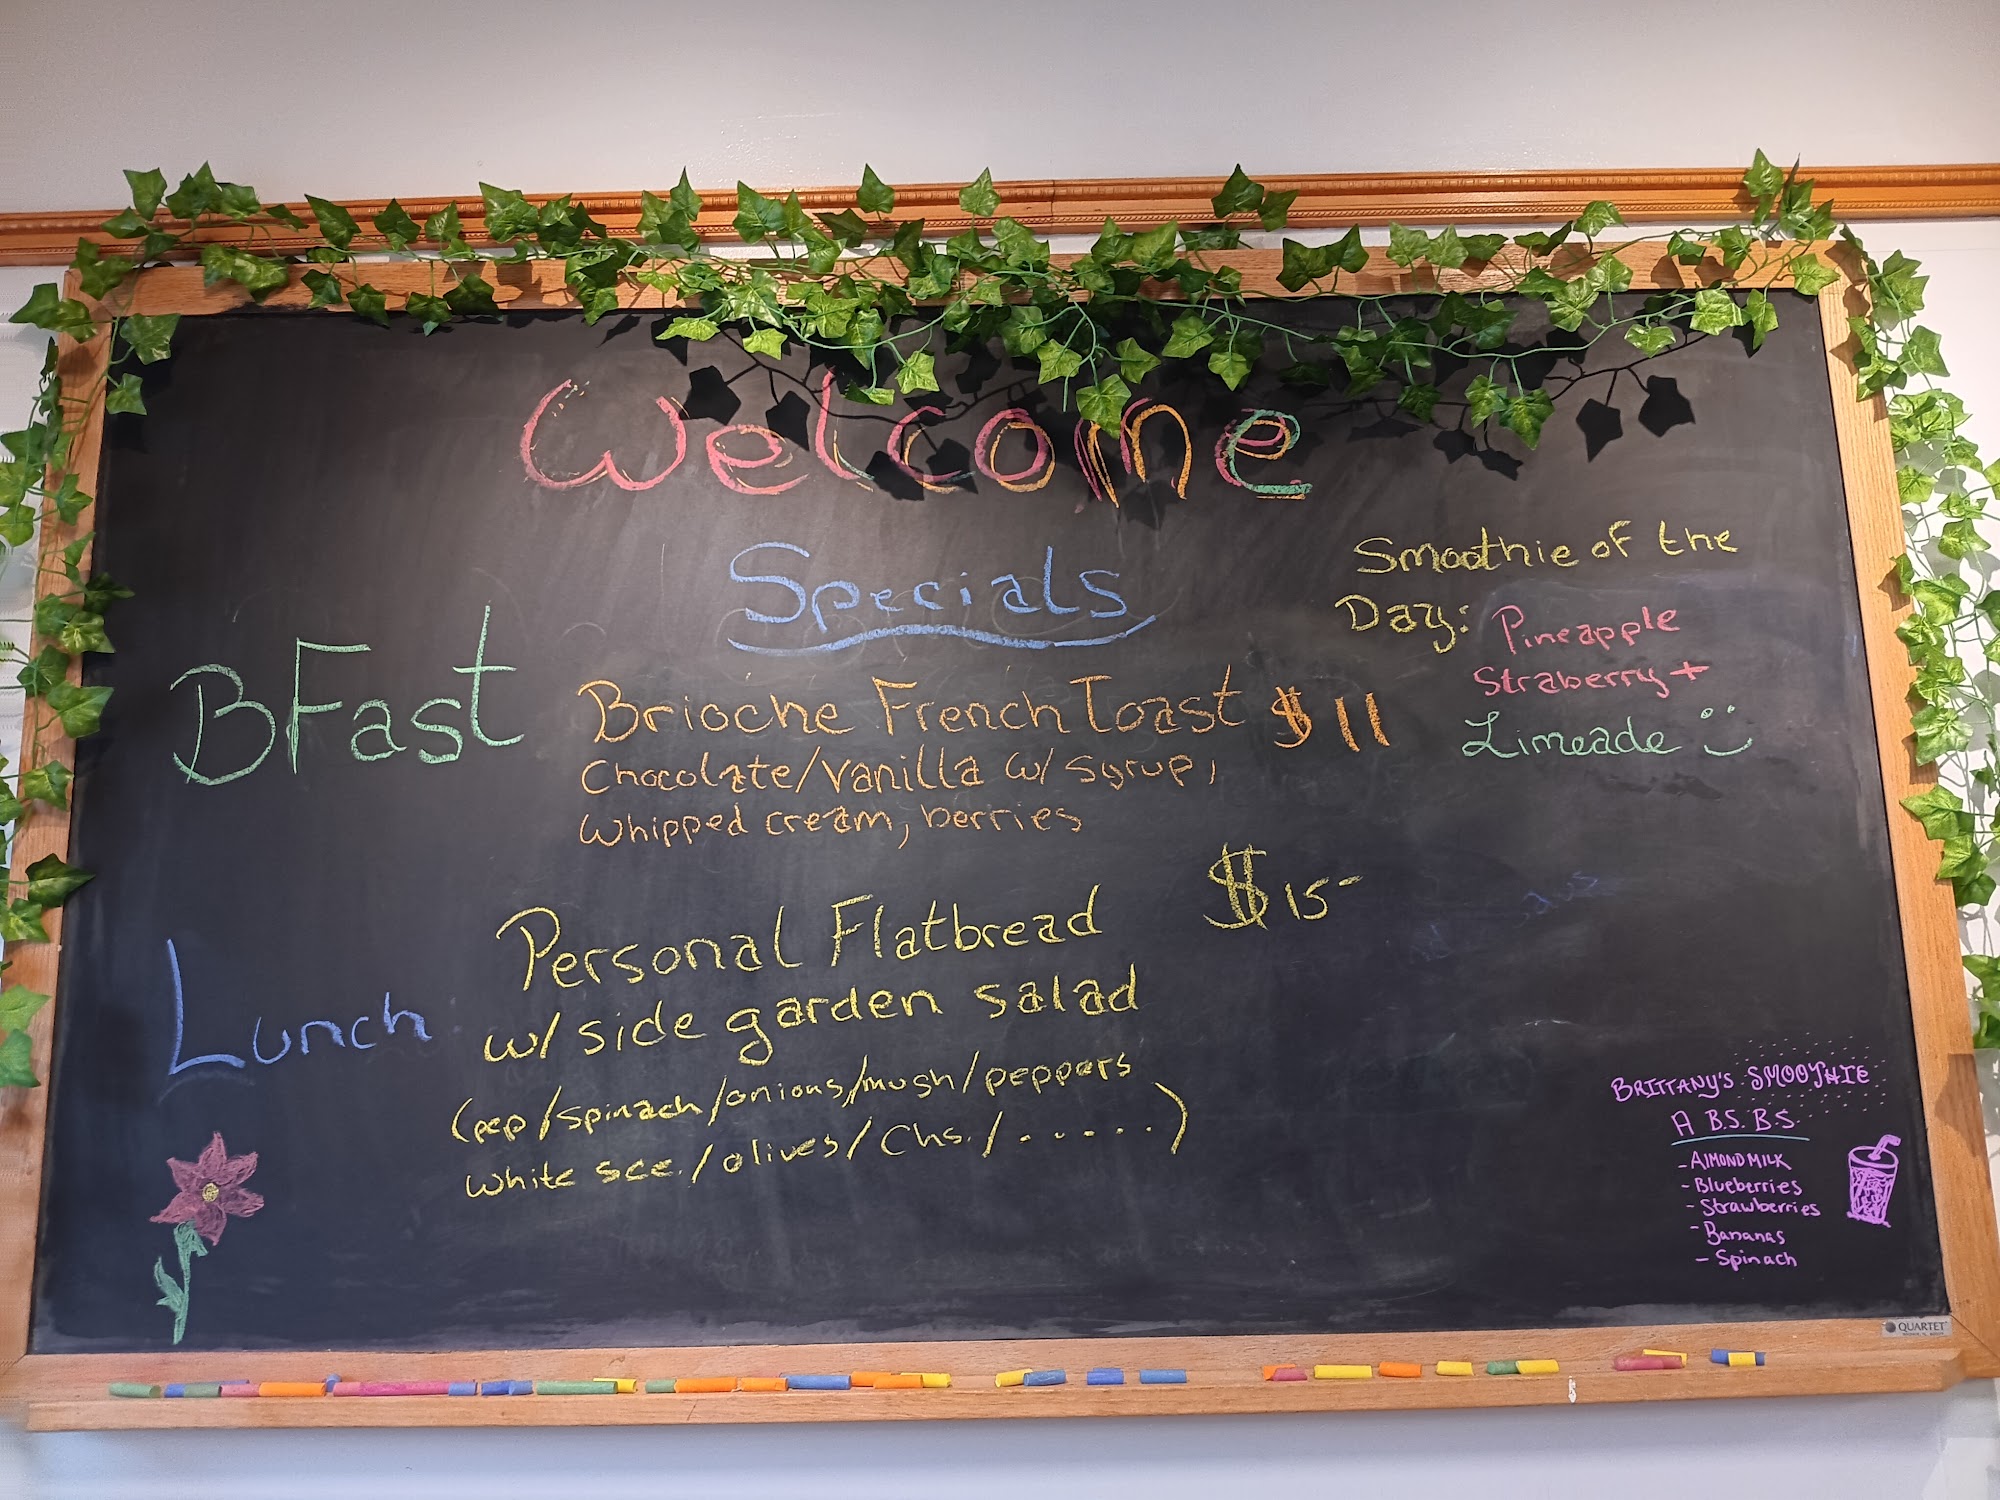 Welcome
Specials
BFast
Brioche French Toast $11
Chocolate/Vanilla w/ syrup,
whipped cream, berries
Smoothie of the
Day: Pineapple
Straberry +
Limeade
Lunch
Personal Flatbread $15-
w/ side garden salad
(pep/spinach/onions/mush/peppers
white sce./olives/Chs./.....)
BRITTANY'S SMOOTHIE
A B.S. B.S.
- Almond milk
- Blueberries
- Strawberries
- Bananas
- Spinach
QUARTET